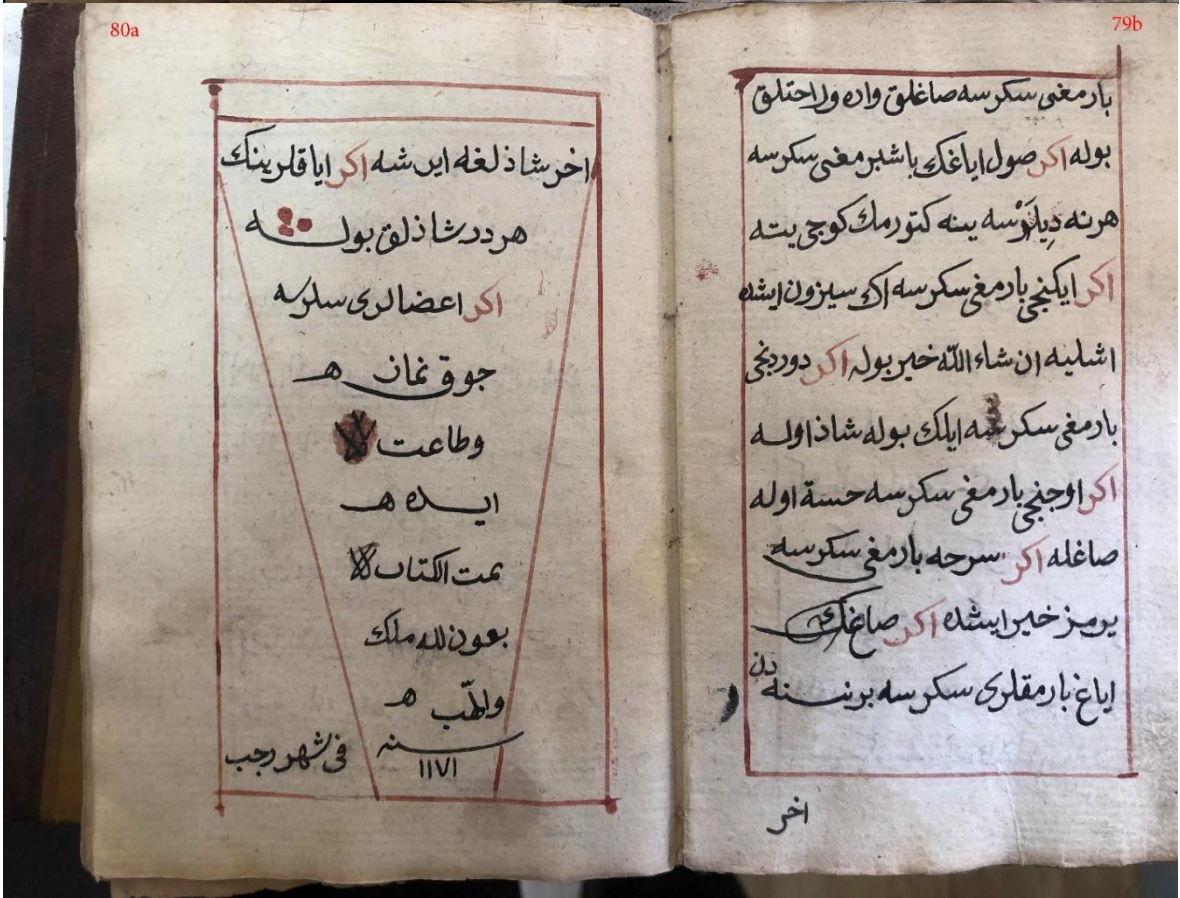 79b
بارمغى سكرسه صاغلق واره ول احتلق
بوله اكر صول اياغك باشبرمغى سكرسه
هرنه ديلرسه ينه كتورمك كوجى يته
اكر ايكنجى بارمغى سكرسه اك سيزون ايشده
اشليه ان شاء الله خير بوله اكر دوردنجى
بارمغى سكرسه ايلك بوله شاذ اوله
اكر اوجنجى بارمغى سكرسه حسته اوله
صاغله اكر سرحه بارمغى سكرسه
يرمز خير ايشده اكر صاغك
اياغ بارمقلرى سكرسه برنسنه دن
اخر
80a
اخر شاذلغه ايرشه اكر اياقلرينك
هر در شاذلق بوله
اكر اعضالرى سكرسه
جوق نماز
وطاعت
ايده
تمت الكتاب
بعون لله ملك
سنه
١١٧١
فى شهر رجب